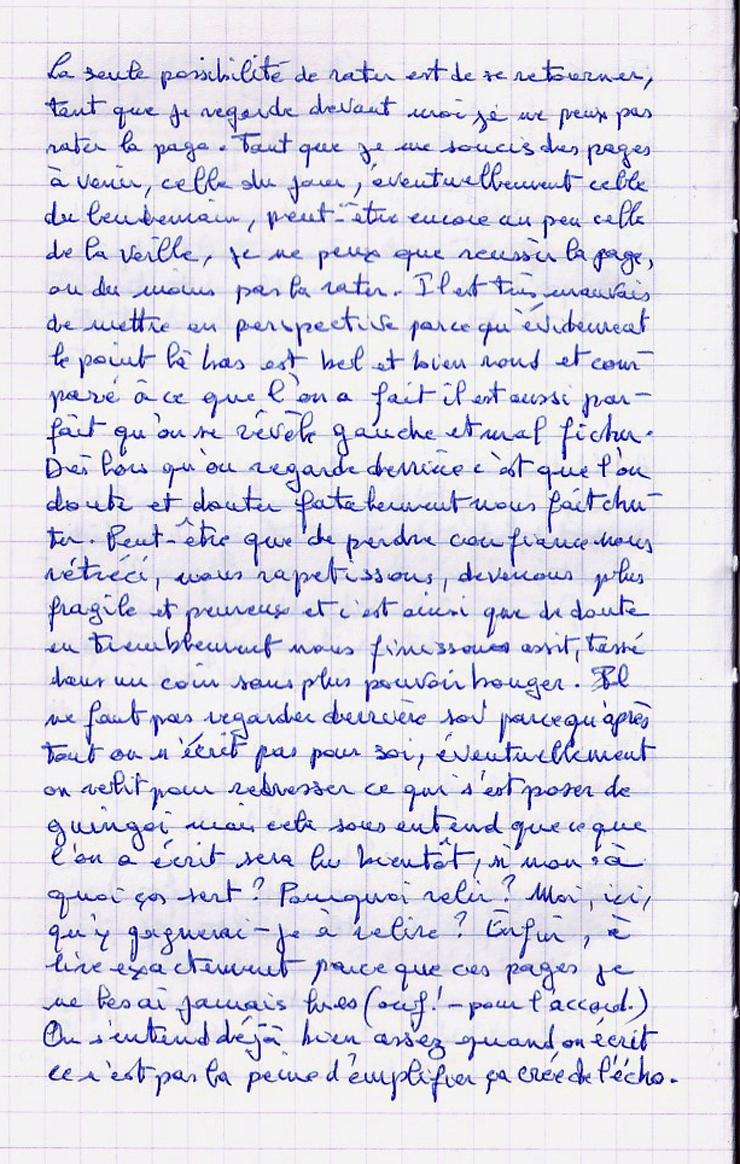 La seule possibilité de rater est de se retourner,
tant que je regarde devant moi je ne peux pas
rater la page. Tant que je me soucis des pages
à venir, celle du jour, éventuellement celle
du lendemain, peut-être encore un peu celle
de la veille, je ne peux que reussir la page,
ou du moins pas la rater. Il est très mauvais
de mettre en perspective parce qu'évidement
le point là bas est bel et bien rond et com-
paré à ce que l'on a fait il est aussi par-
fait qu'on se révèle gauche et mal fichu.
Dès lors qu'on regarde derrière c'est que l'on
doute et douter fatalement nous fait chu-
ter. Peut-être que de perdre confiance nous
rétréci, nous rapetissons, devenons plus
fragile et peureux et c'est ainsi que de doute
en tremblement nous finissons assit, tassé
dans un coin sans plus pouvoir bouger. Il
ne faut pas regarder derrière soi parcequ'après
tout on n'écrit pas pour soi, éventuellement
on relit pour redresser ce qui s'est poser de
guingoi mais cela sous entend que ce que
l'on a écrit sera lu bientôt, si non à
quoi ça sert? Pourquoi relir? Moi, ici,
qu'y gagnerai-je à relire? Enfin, à
lire exactement parce que ces pages je
ne les ai jamais lues (ouf! - pour l'accord.)
On s'entend déjà bien assez quand on écrit
ce n'est pas la peine d'emplifier ça crée de l'écho.